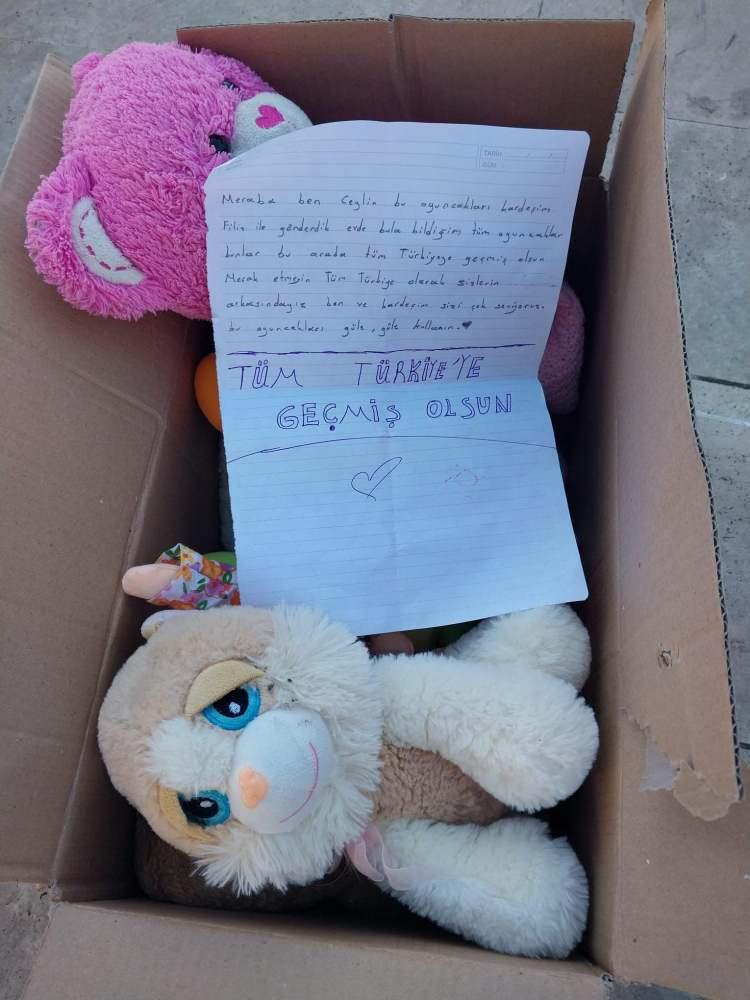 TARİH / /
Meraba ben Ceylin bu oyuncakları kardeşim
Filiz ile gönderdik evde bula bildiğim tüm oyuncaklar
bunlar bu arada tüm Türkiyeye geçmiş olsun
Merak etmeyin Tüm Türkiye olarak sizlerin
arkasındayız ben ve kardeşim sizi çok seviyoruz.
bu oyuncakları güle, güle kullanın.♥
TÜM TÜRKİYE'YE
GEÇMİŞ OLSUN